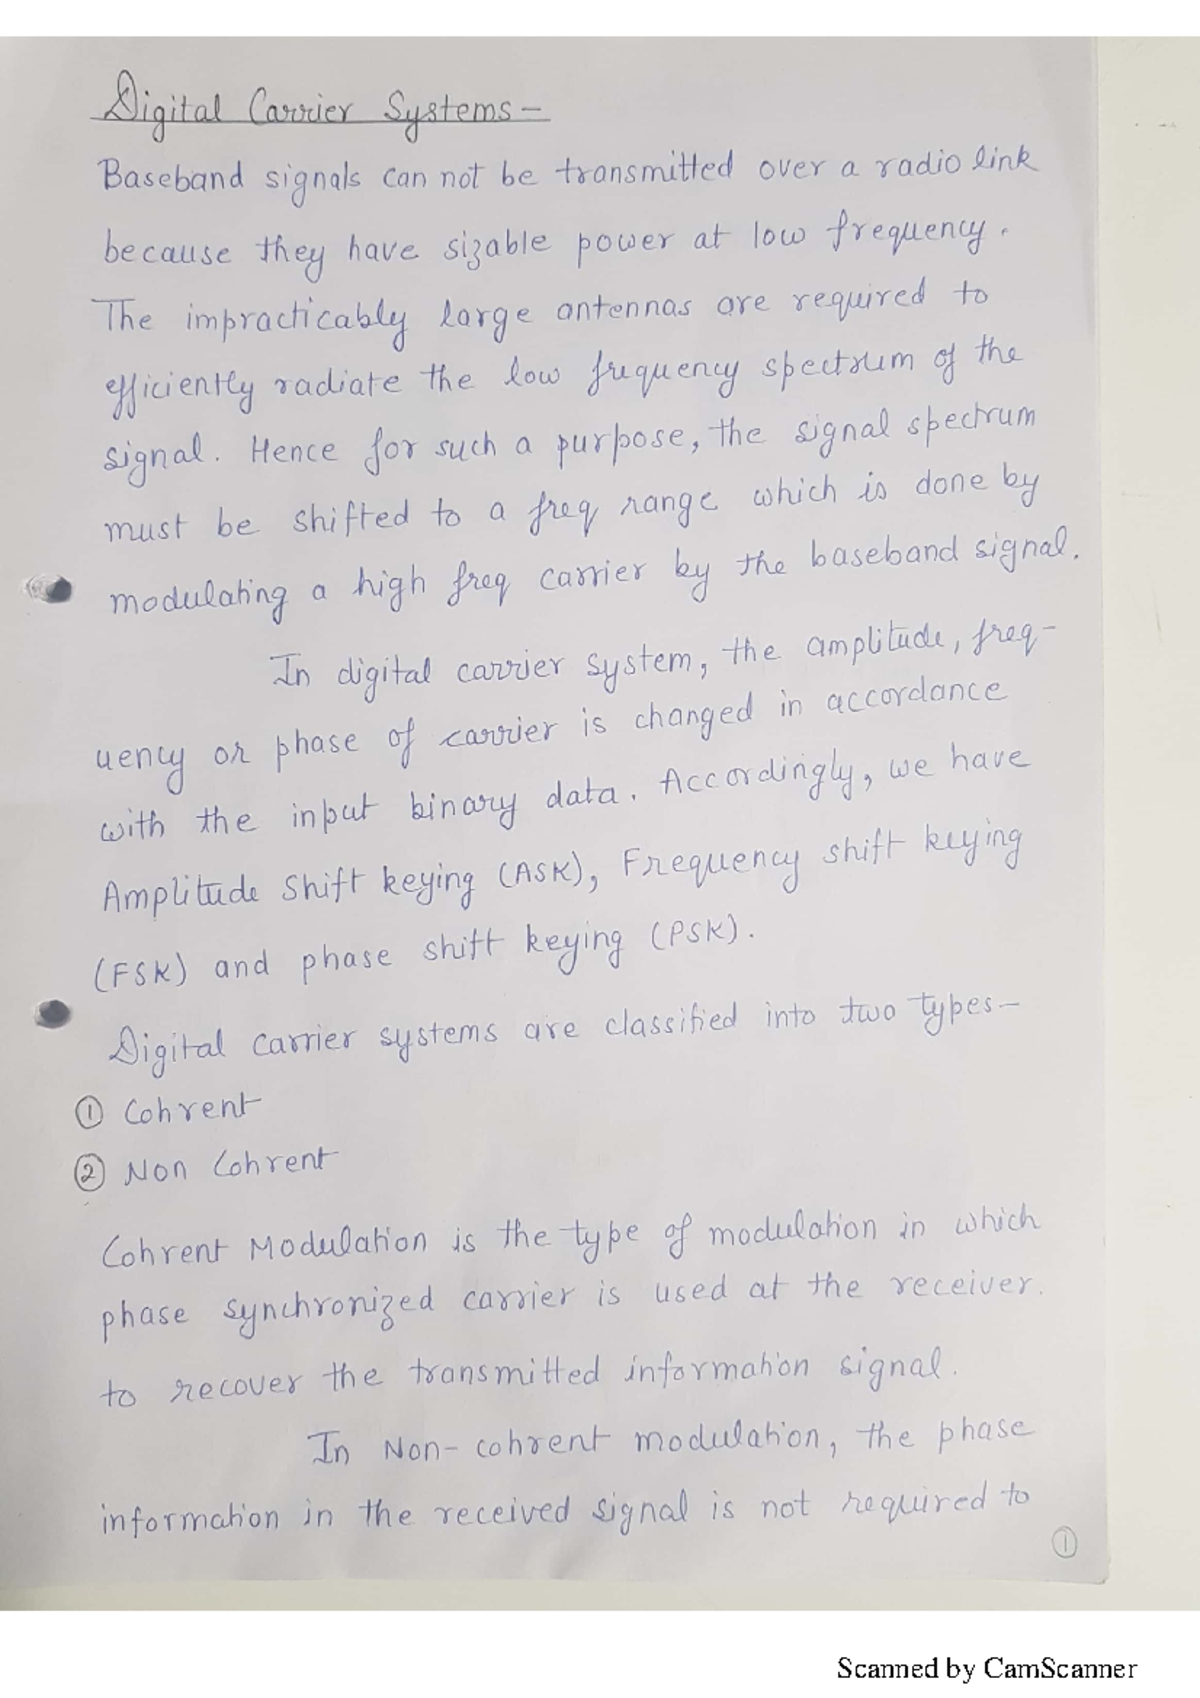 Digital Carrier Systems-
Baseband signals can not be transmitted over a radio link
because they have sizable power at low frequency.
The impracticably large antennas are required to
efficiently radiate the low frequency spectrum of the
signal. Hence for such a purpose, the signal spectrum
must be shifted to a freq range which is done by
modulating a high freq carrier by the baseband signal.
In digital carrier system, the amplitude, freq-
uency or phase of carrier is changed in accordance
with the input binary data. Accordingly, we have
Amplitude Shift keying (ASK), Frequency shift keying
(FSK) and phase shift keying (PSK).
Digital carrier systems are classified into two types-
① Cohrent
② Non Cohrent
Cohrent Modulation is the type of modulation in which
phase synchronized carrier is used at the receiver.
to recover the transmitted information signal.
In Non-cohrent modulation, the phase
information in the received signal is not required to
①
Scanned by CamScanner